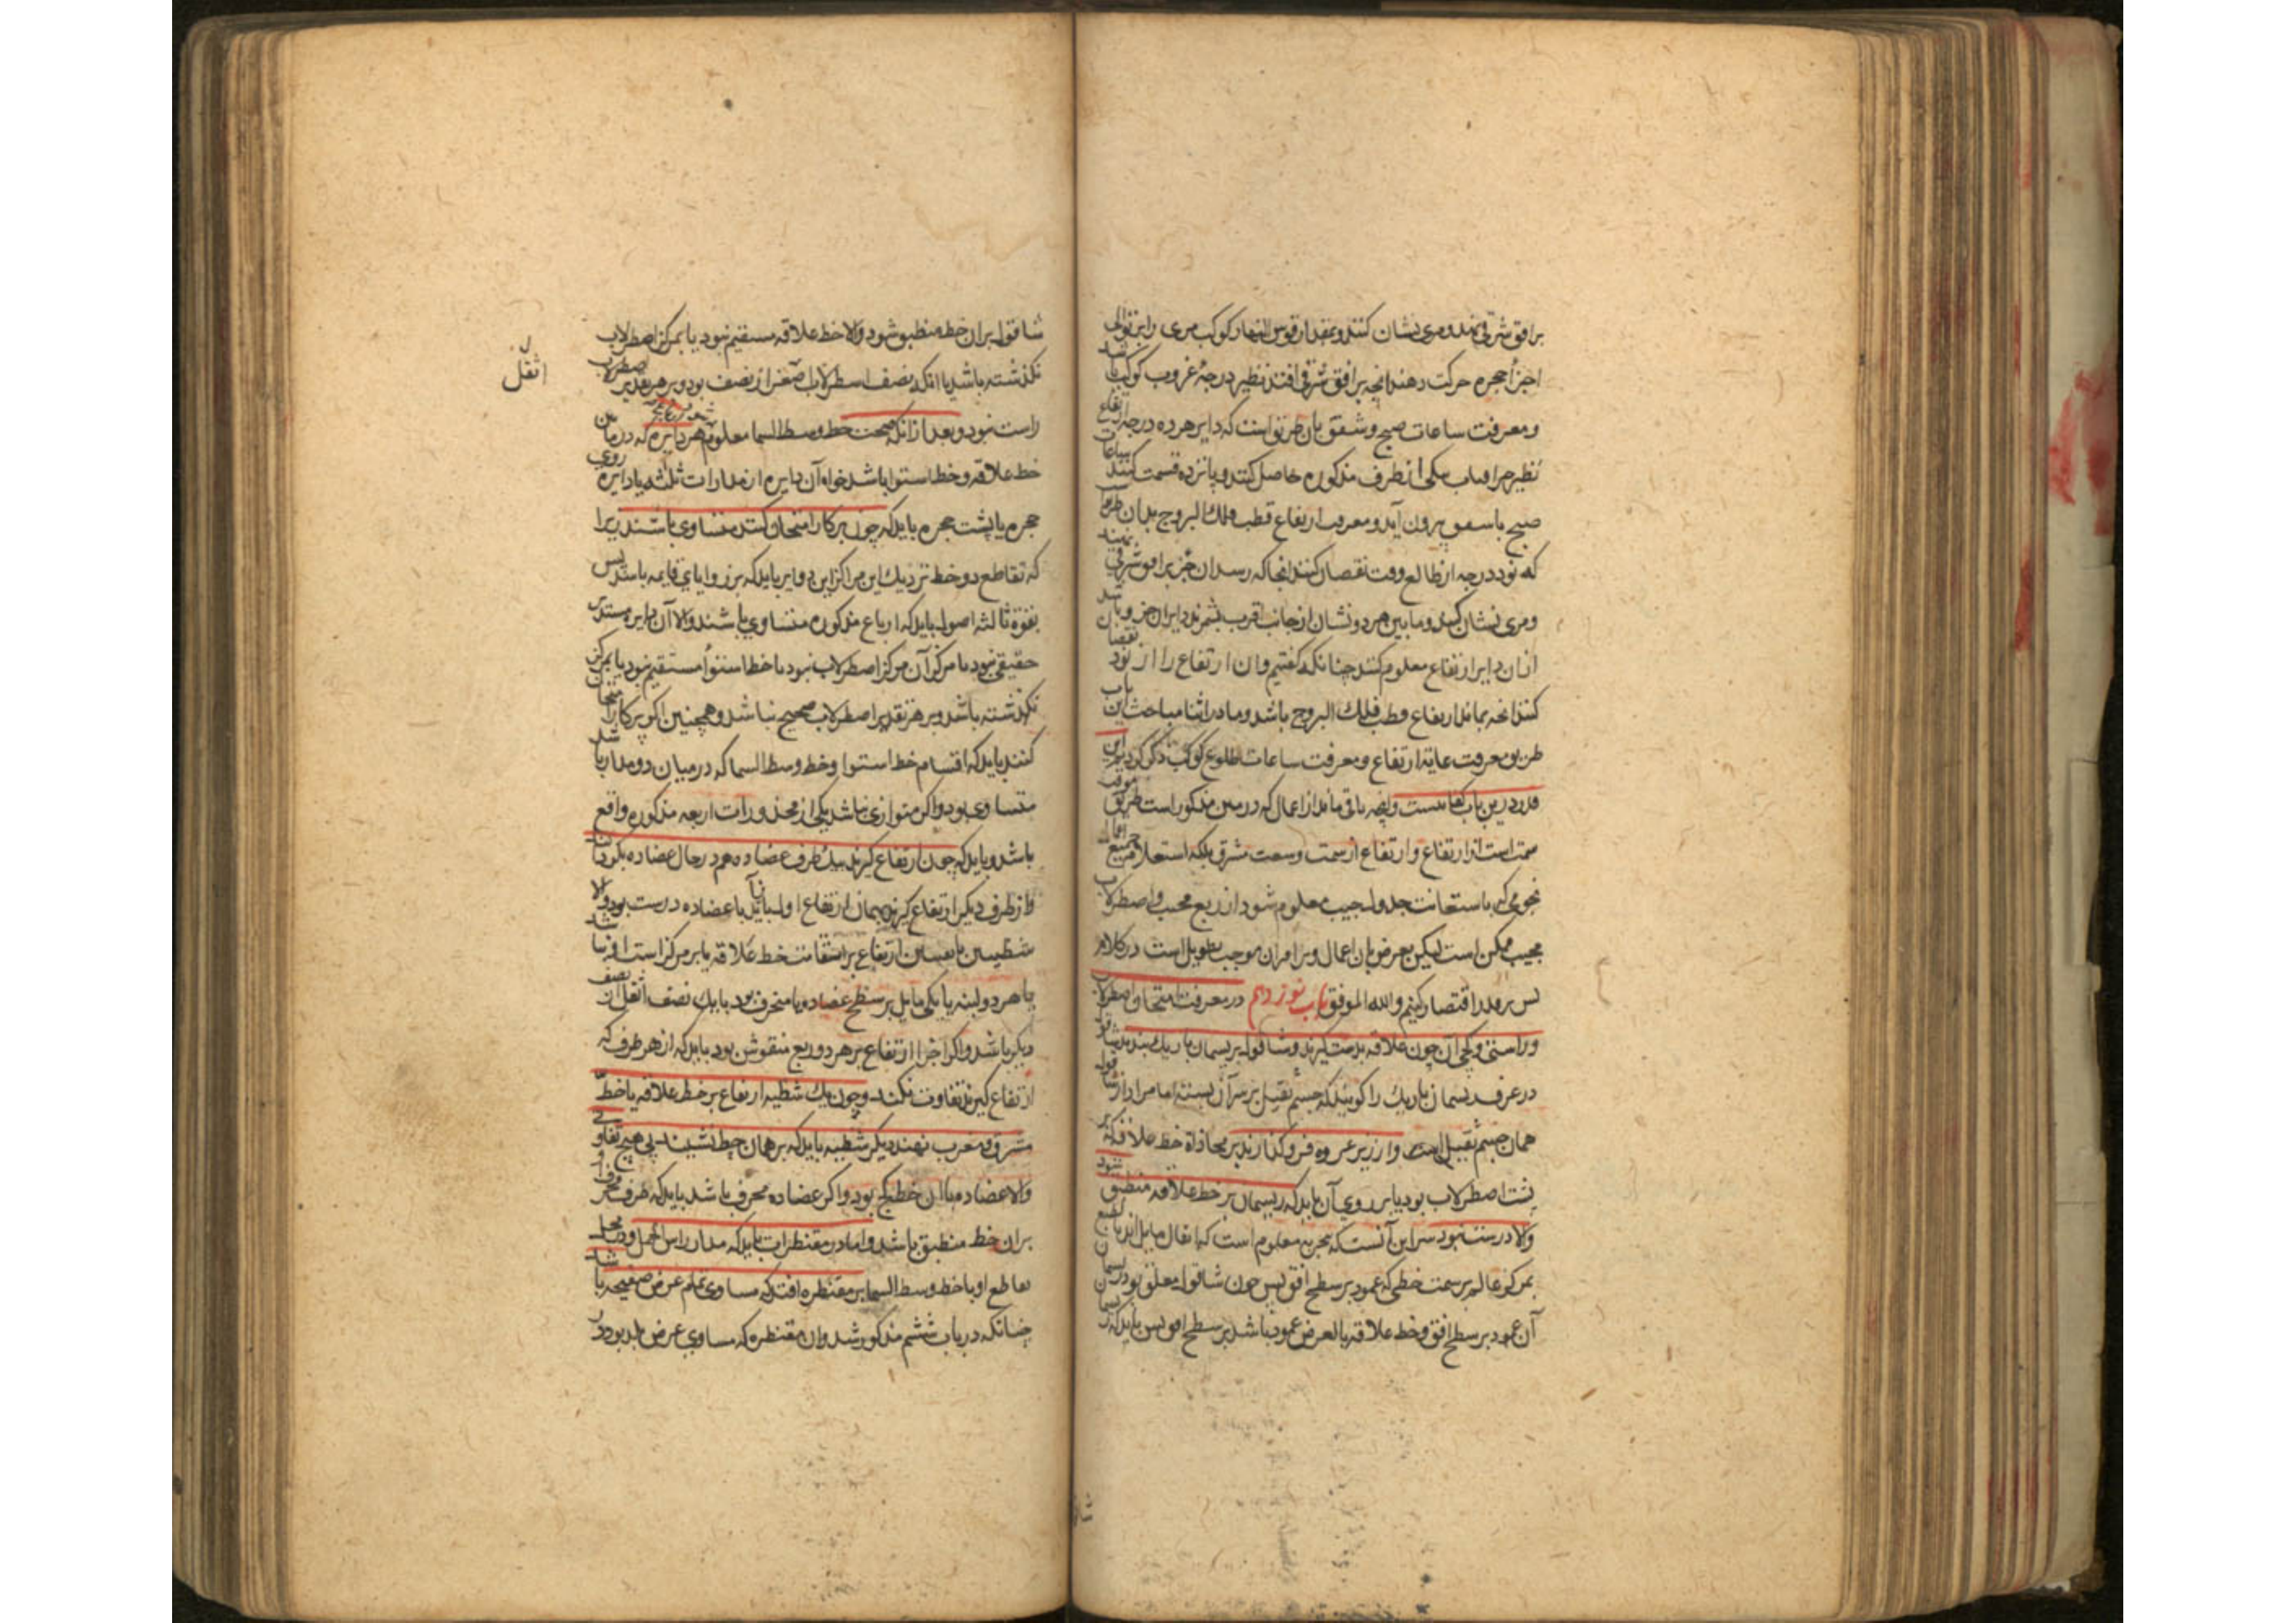 بر افق شرقی نهند و مری نشان کنند و بمقدار قوس النهار کوکب مری را بر توالی
اجزاء حجره حرکت دهند انچه بر افق شرقی افتد نظیر درجۀ غروب کوکب باشد
و معرفت ساعات صبح و شفق بان طریق است که دایر هرده درجه ارتفاع
نظیر جزء افتاب یکی از طرف مذکوره حاصل کنند و پانزده قسمت کنند ساعات
صبح یا شفق بیرون آید و معرفت ارتفاع قطب فلک البروج بدان طریق
که نود درجه از طالع وقت نقصان کنند انجا که رسد ان جزء بر افق شرقی نهند
و مری نشان کنند و ما بین هر دو نشان از جانب اقرب بشمرند دایر ان جزء باشد و
از ان دایر ارتفاع معلوم کنند چنانکه گفتیم و ان ارتفاع را از نود نقصان
کنند انچه بماند ارتفاع قطب فلک البروج باشد و ما در اثنا مباحث این باب
طریق معرفت غایة ارتفاع و معرفت ساعات طلوع کوکب ذکر کردیم این
قدر درین باب کفایتست و انچه باقی ماند از اعمال که در متن مذکور است طریق معرفت
سمت است از ارتفاع و ارتفاع از سمت و سعت مشرق بلکه استعلام جمیع اعمال
نجومی که باستعانت جداول جیب معلوم شود از ربع مجیب و اصطرلاب
مجیب ممکن است لیکن تعرض بان اعمال و براهین ان موجب تطویل است در کلام
پس برین قدر اقتصار کنیم والله الموفق باب نوزدهم در معرفت امتحان اصطرلاب
و راستی و کجی آن چون علاقه بدست گیرند و شاقول بریسمان باریک بندند شاقول
در عرف ریسمان باریک را گویند که جسم ثقیل بر سر آن بسته اما مراد از شاقول
همان جسم ثقیل است و از زیر عروه فرو گذارند بر محاذاة خط علاقه که بر
پشت اصطرلاب بود یا بر روی آن باید که ریسمان بر خط علاقه منطبق شود
والا درست نبود سر این آنست که بتجربه معلوم است که اثقال مایل اند بالطبع
بمرکز عالم بر سمت خطی که عمود بر سطح افق پس چون شاقول معلق بود ریسمان
آن عمود بر سطح افق و خط علاقه بالعرض عمود باشد بر سطح افق پس باید که ریسمان
شاقول بر ان خط منطبق شود والا خط علاقه مستقیم نبود یا بمرکز اصطرلاب
نگذشته باشد یا انکه نصف اسطرلاب اصغر از نصف بود و بر هر تقدیر اصطرلاب
راست نبود و بعد از انکه صحت خط وسط السما معلوم شود هر دایره که در میان
خط علاقه و خط استوا باشد خواه آن دایره از مدارات ثلثه یا دایره روی
حجره یا پشت حجره باید که چون بپرکار امتحان کنند متساوی باشند زیرا
که تقاطع دو خط نزدیک این مراکز این دوایر باید که بر زوایای قایمه باشد پس
بقوة ثالثه اصول باید که ارباع مذکوره متساوی باشند والا آن دایر مستدیر
حقیقی نبود یا مرکز آن مرکز اصطرلاب نبود یا خط استوا مستقیم نبود یا بمرکز
نگذشته باشد و بر هر تقدیر اصطرلاب صحیح نباشد و همچنین اگر بپرکار امتحان
کنند باید که اقسام خط استوا و خط وسط السما که در میان دو مدار باشد
متساوی بود و اگر متوازی نباشد یکی از محذورات اربعه مذکوره واقع
باشد و باید که چون ارتفاع گیرند بیک طرف عضاده هم در حال عضاده بگردانند
و از طرف دیگر ارتفاع گیرند همان ارتفاع اول بیاید با عضاده درست بود والا
شظیتین یا لبنتین ارتفاع بر استقامت خط علاقه یا بر مرکز است او نباشد
یا هر دو لبنه یا یکی مایل بر سطح عضاده یا منحرف بود یا یک نصف اثقل از نصف
دیگر باشد و اگر اجزا ارتفاع بر هر دو ربع منقوش بود باید که از هر طرف که
ارتفاع گیرند تفاوت نکند و چون یک شظیه ارتفاع بر خط علاقه یا خط
مشرق و مغرب نهند دیگر شظیه باید که بر همان خط نشیند بی هیچ تفاوتی
والا عضاده یا ان خط کج بود و اگر عضاده محرف باشد باید که طرف محرف او
بران خط منطبق باشد و اما در مقنطرات باید که مدار راس الحمل و محل
تقاطع او با خط وسط السما بر مقنطره افتد که مساوی تمام عرض صفیحه باشد
چنانکه در باب ششم مذکور شد و ان مقنطره که مساوی عرض بلد بود در
اثقل